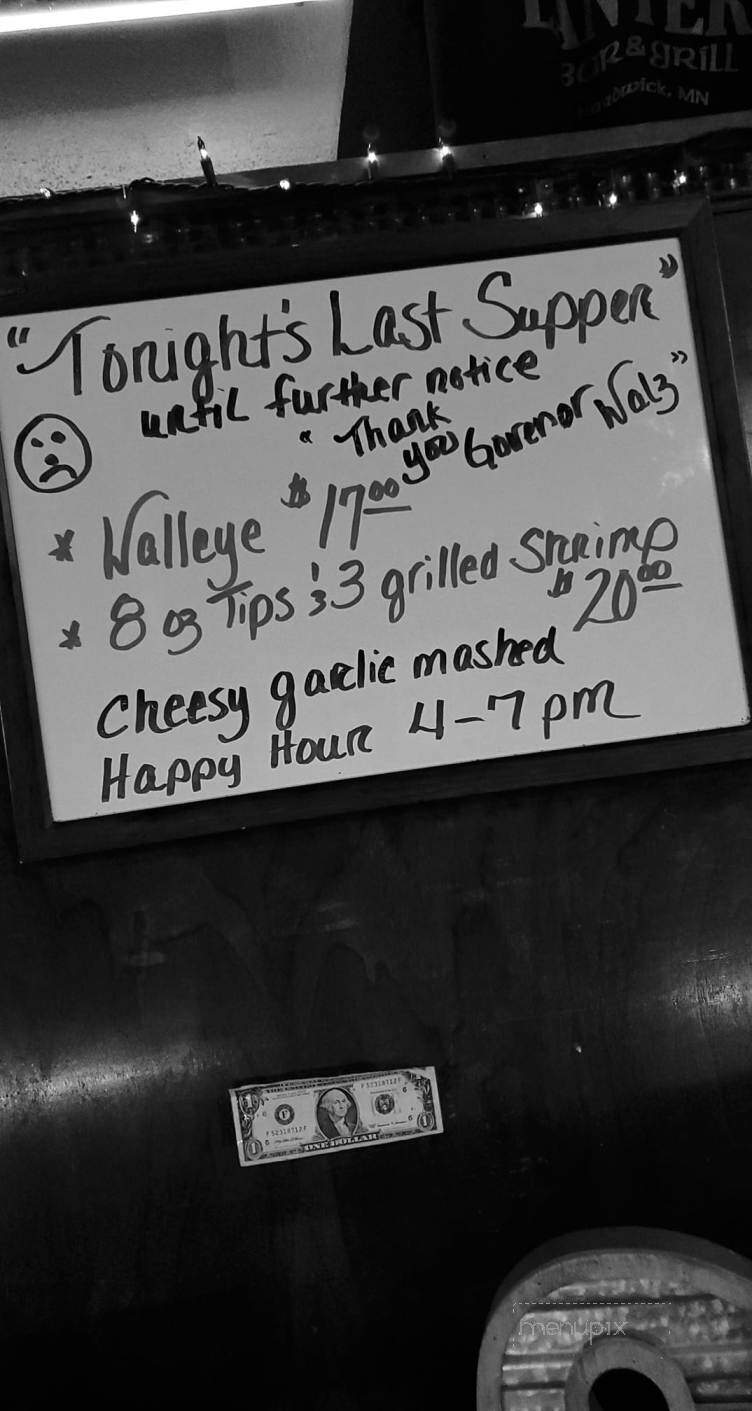 BAR & GRILL
MN
"Tonight's Last Supper"
until further notice
"Thank you Govenor Walz"
* Walleye $17.00
* 8 oz Tips & 3 grilled Shrimp
$20.00
Cheesy garlic mashed
Happy Hour 4-7 pm
F 52318712 F
F 52318712 F
ONE DOLLAR
menupix